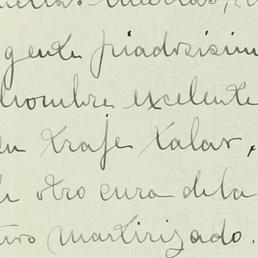 gente piadosísim
hombre excelente
en traje talar,
otro cura de la
martirizado.